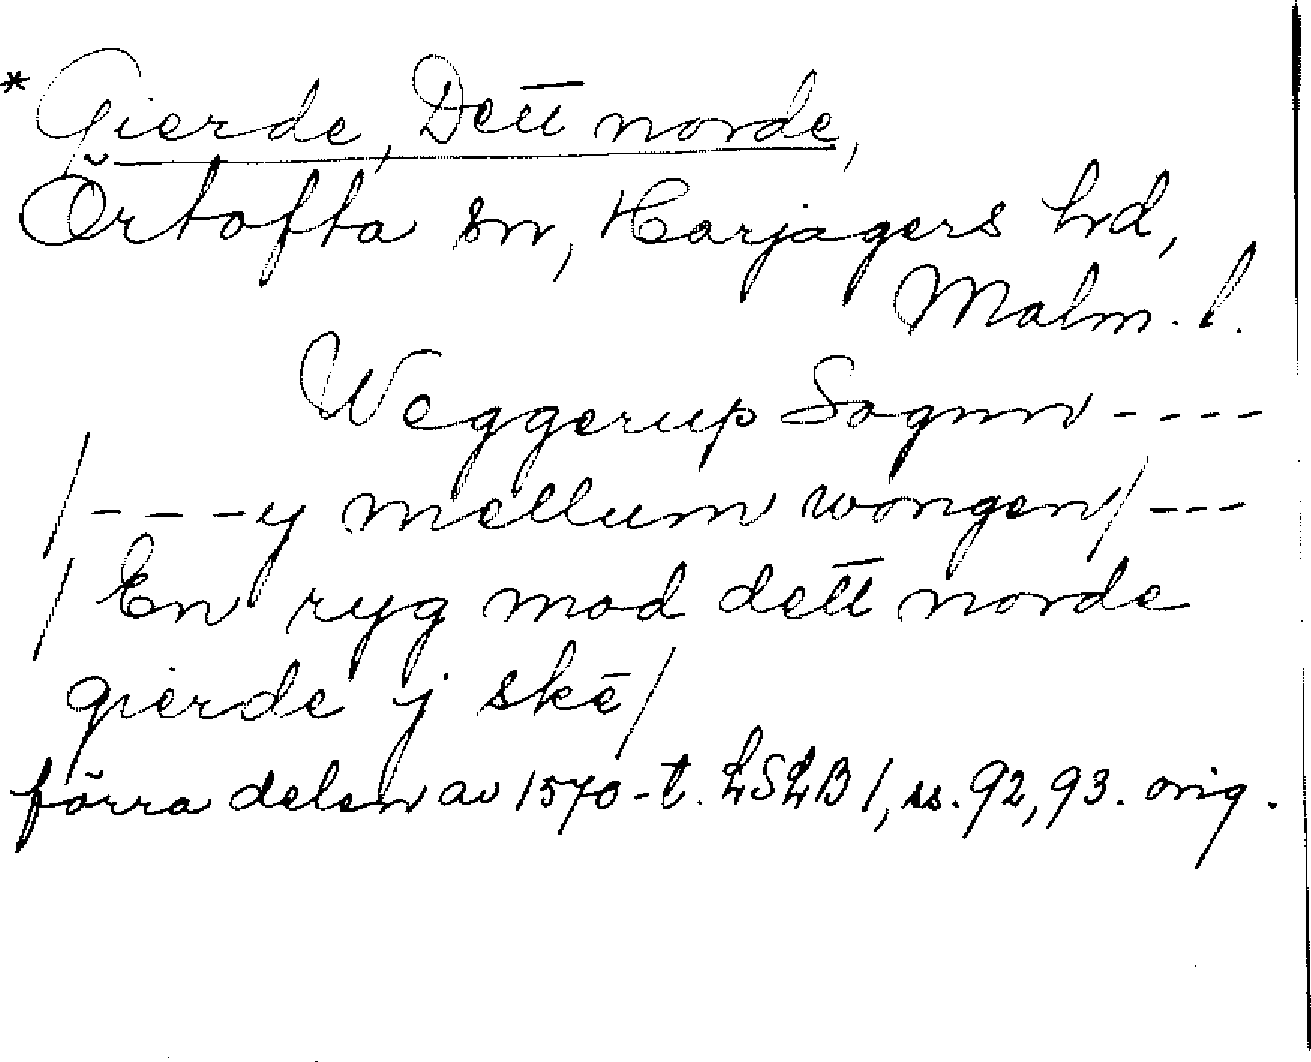 * Gierde, Dett norde,
Örtofta sn, Harjagers hd,
Malm. l.
Weggerup Sognn ----
/ ---y mellum wongen/ ---
/ En ryg mod dett norde
gierde j skē/
förra delen av 1570-t. LSLB 1, ss. 92, 93. orig.